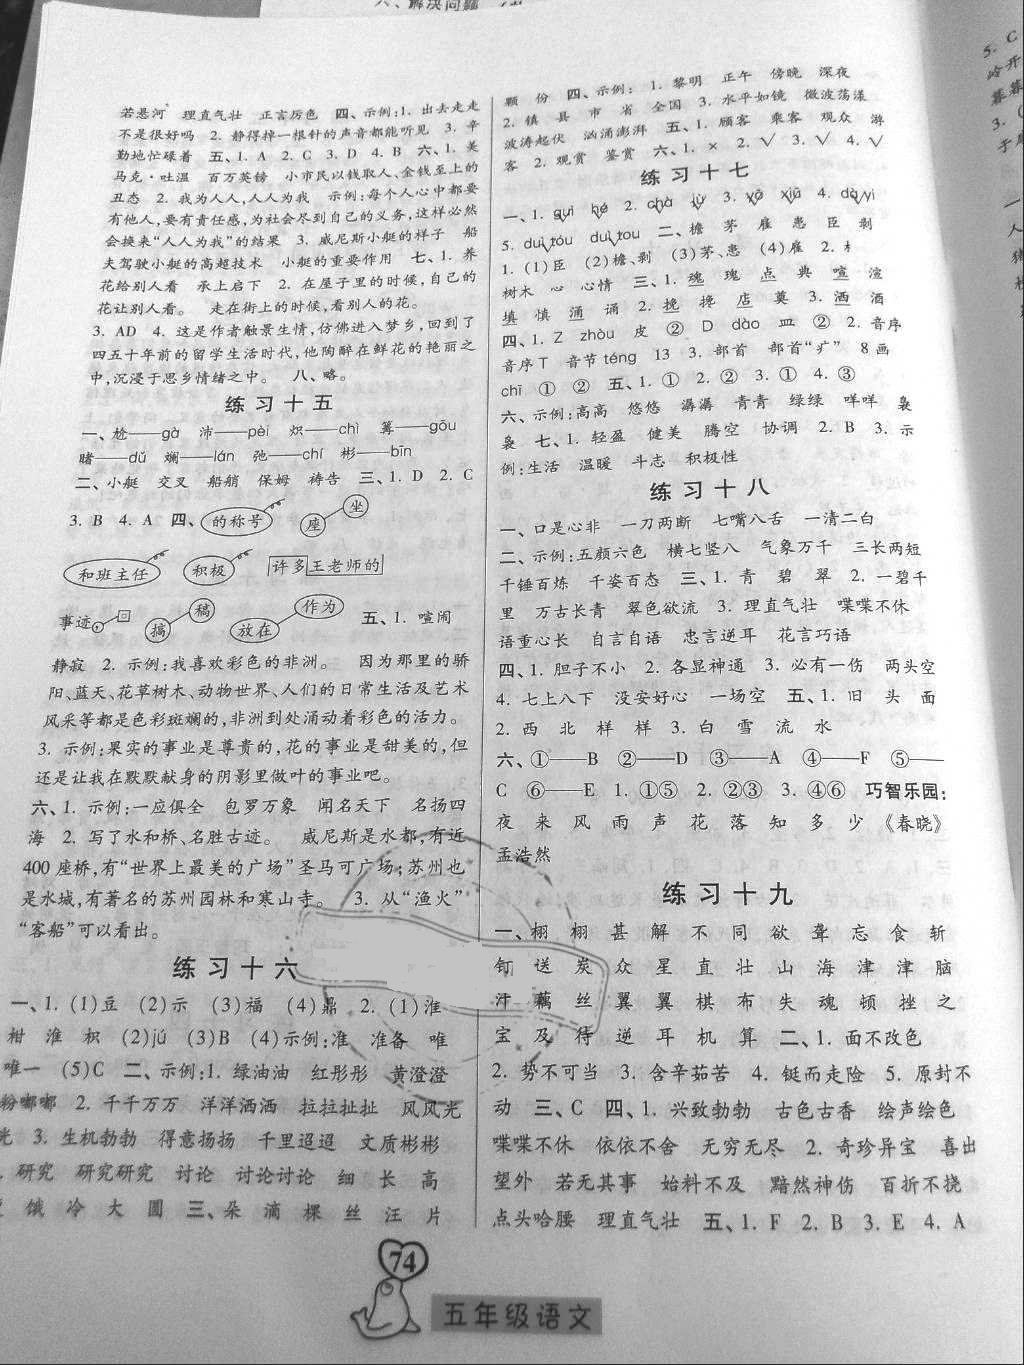 六、解决问题
若悬河 理直气壮 正言厉色 四、示例:1. 出去走走
不是很好吗 2. 静得掉一根针的声音都能听见 3. 辛
勤地忙碌着 五、1. A 2. C 3. D 4. B 六、1. 美
马克·吐温 百万英镑 小市民以钱取人、金钱至上的
丑态 2. 我为人人,人人为我 示例:每个人心中都要
有他人,要有责任感,为社会尽到自己的义务,这样必然
会换来“人人为我”的结果 3. 威尼斯小艇的样子 船
夫驾驶小艇的高超技术 小艇的重要作用 七、1. 养
花给别人看 承上启下 2. 在屋子里的时候,自己的
花让别人看。 走在街上的时候,看别人的花。
3. AD 4. 这是作者触景生情,仿佛进入梦乡,回到了
四五十年前的留学生活时代,他陶醉在鲜花的艳丽之
中,沉浸于思乡情绪之中。 八、略。
练习十五
一、尬——gà 沛——pèi 炽——chì 篝——gōu
睹——dǔ 斓——lán 弛——chí 彬——bīn
二、小艇 交叉 船艄 保姆 祷告 三、1. D 2. C
3. B 4. A 四、的称号 座 坐
和班主任 积极 许多王老师的
事迹 搞 稿 放在 作为 五、1. 喧闹
静寂 2. 示例:我喜欢彩色的非洲。 因为那里的骄
阳、蓝天、花草树木、动物世界、人们的日常生活及艺术
风采等都是色彩斑斓的,非洲到处涌动着彩色的活力。
3. 示例:果实的事业是尊贵的,花的事业是甜美的,但
还是让我在默默献身的阴影里做叶的事业吧。
六、1. 示例:一应俱全 包罗万象 闻名天下 名扬四
海 2. 写了水和桥、名胜古迹。 威尼斯是水都,有近
400座桥,有“世界上最美的广场”圣马可广场;苏州也
是水城,有著名的苏州园林和寒山寺。 3. 从“渔火”
“客船”可以看出。
练习十六
一、1. (1)豆 (2)示 (3)福 (4)鼎 2. (1)淮
柑 淮 枳 (2)jú (3)B (4)示例:准 准备 唯
唯一 (5)C 二、示例:1. 绿油油 红彤彤 黄澄澄
粉嘟嘟 2. 千千万万 洋洋洒洒 拉拉扯扯 风风光
光 3. 生机勃勃 得意扬扬 千里迢迢 文质彬彬
研究 研究研究 讨论 讨论讨论 细 长 高
饿 冷 大 圆 三、朵 滴 棵 丝 汪 片
颗 份 四、示例: 1. 黎明 正午 傍晚 深夜
2. 镇 县 市 省 全国 3. 水平如镜 微波荡漾
波涛起伏 汹涌澎湃 五、1. 顾客 乘客 观众 游
客 2. 观赏 鉴赏 六、1. × 2. √ 3. √ 4. √
练习十七
一、1. guì hé 2. chà 3. xiū 4. dò yì
5. duì tóu duì tou 二、檐 茅 雇 患 臣 剥
1. (1)臣 (2)檐、剥 (3)茅、患 (4)雇 2. 木
树木 心 心情 三、1. 魂 瑰 点 典 喧 渲
填 慎 涌 诵 2. 挽 搀 店 莫 3. 洒 酒
四、1. Z zhòu 皮 ② D dào 皿 ② 2. 音序
音序T 音节téng 13 3. 部首 部首“疒” 8画
chī ① ② 五、1. ① 2. ② 3. ① 4. ③
六、示例:高高 悠悠 潺潺 青青 绿绿 咩咩 袅
袅 七、1. 轻盈 健美 腾空 协调 2. B 3. 示
例:生活 温暖 斗志 积极性
练习十八
一、口是心非 一刀两断 七嘴八舌 一清二白
二、示例:五颜六色 横七竖八 气象万千 三长两短
千锤百炼 千姿百态 三、1. 青 碧 翠 2. 一碧千
里 万古长青 翠色欲流 3. 理直气壮 喋喋不休
语重心长 自言自语 忠言逆耳 花言巧语
四、1. 胆子不小 2. 各显神通 3. 必有一伤 两头空
4. 七上八下 没安好心 一场空 五、1. 旧 头 面
2. 西 北 样 样 3. 白 雪 流 水
六、①——B ②——D ③——A ④——F ⑤——
C ⑥——E 1. ①⑤ 2. ②③ 3. ④⑥ 巧智乐园:
夜 来 风 雨 声 花 落 知 多 少 《春晓》
孟浩然
练习十九
一、栩 栩 甚 解 不 同 欲 聋 忘 食 斩
钉 送 炭 众 星 直 壮 山 海 津 津 脑
汁 藕 丝 翼 翼 棋 布 失 魂 顿 挫 之
宝 及 待 逆 耳 机 算 二、1. 面不改色
2. 势不可当 3. 含辛茹苦 4. 铤而走险 5. 原封不
动 三、C 四、1. 兴致勃勃 古色古香 绘声绘色
喋喋不休 依依不舍 无穷无尽 2. 奇珍异宝 喜出
望外 若无其事 始料不及 黯然神伤 百折不挠
点头哈腰 理直气壮 五、1. F 2. B 3. E 4. A
74
五年级语文